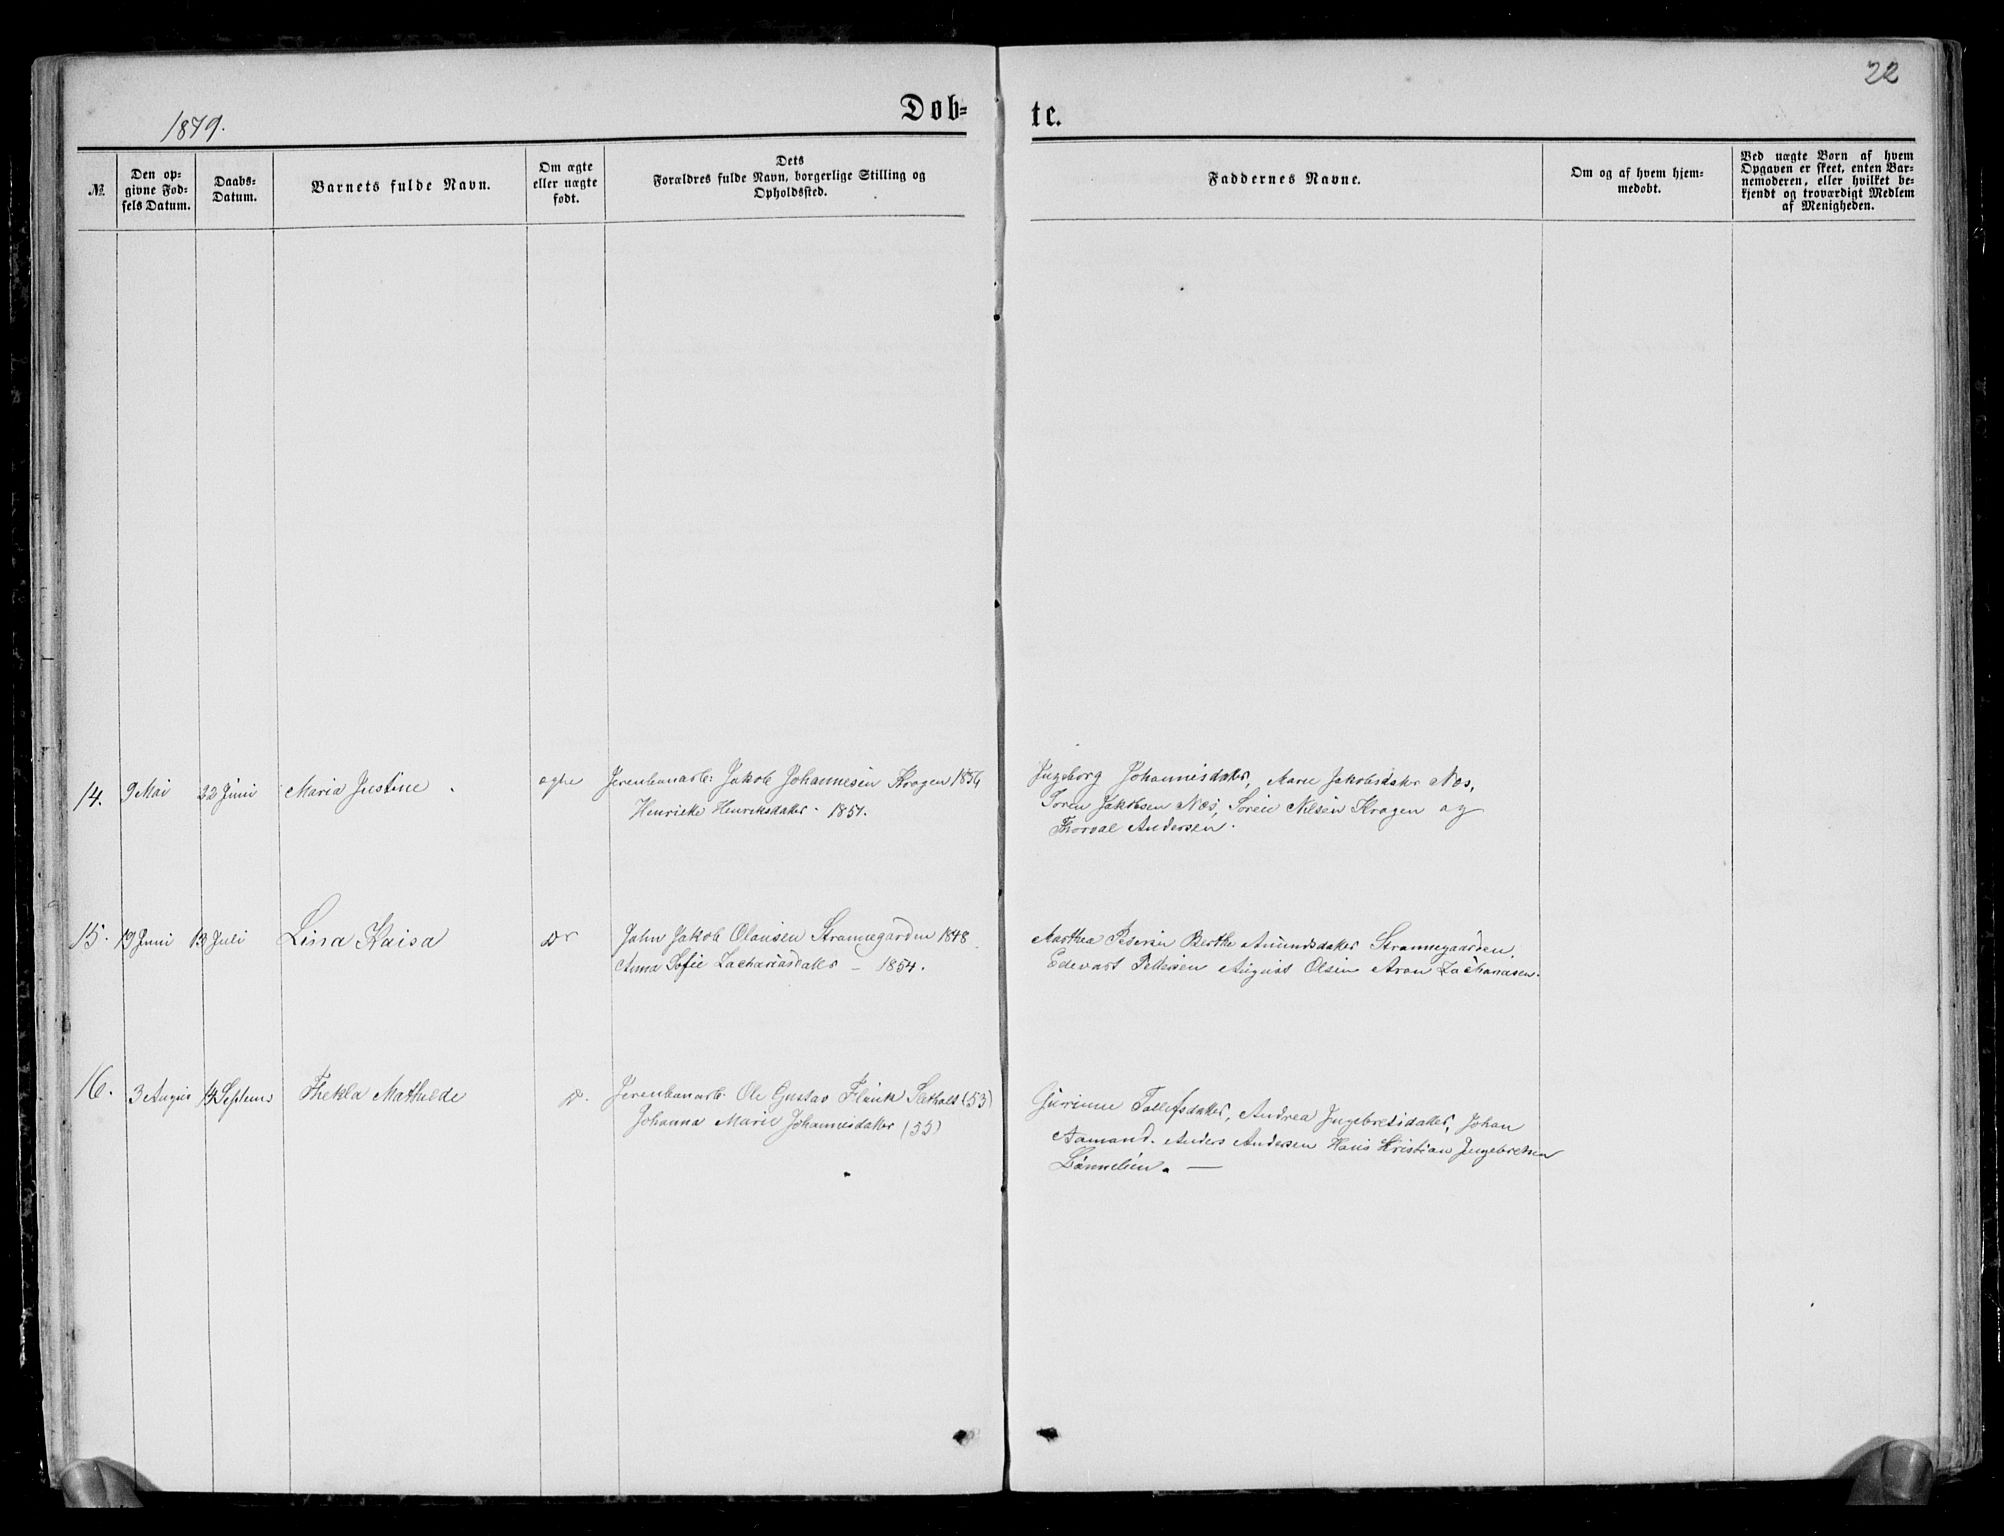 22
1879.
Døb-
te.
№.
Den op-
givne Fød-
sels Datum.
Daabs-
Datum.
Barnets fulde Navn.
Om ægte
eller uægte
født.
Dets
Forældres fulde Navn, borgerlige Stilling og
Opholdssted.
Faddernes Navne.
Om og af hvem hjem-
medøbt.
Ved uægte Børn af hvem
Opgaven er skeet, enten Bar-
nemoderen, eller hvilket be-
kjendt og troværdigt Medlem
af Menigheden.
14. 9 Mai 22 Juni Maria Justine ægte Jerenbanarb: Jakob Johannesen Krogen 1856
Henrieke Henriksdater - 1851.
Ingeborg Johannesdater, Maren Jakobsdater Næs,
Søren Jakobsen Næs, Søren Nilsen Krogen og
Thorval Andersen.
15. 19 Juni 13 Juli Lina Kaisa Do John Jakob Olausen Strømnegarden 1848
Anna Sofie Zachariasdater - 1854.
Marthea Pedersen Berthe Amundsdater Strømnegaarden.
Edevart Pettersen August Olsen Aron Zachariasen.
16. 3 Augus 14 Septems Thekla Mathilde D. Jerenbanarb: Ole Gustav (53)
Johanna Marie Johannesdater (55)
Gurinne Tollefsdater, Andrea Ingebretsdater, Johan
Aamand. Anders Andersen Hans Kristian Ingebretsen